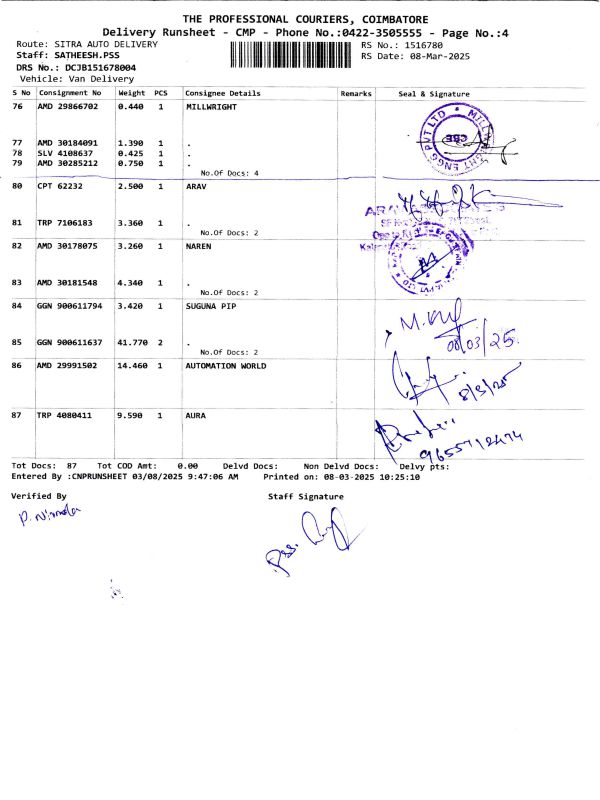 THE PROFESSIONAL COURIERS, COIMBATORE
Delivery Runsheet - CMP - Phone No.:0422-3505555 - Page No.:4
Route: SITRA AUTO DELIVERY RS No.: 1516780
Staff: SATHEESH.PSS RS Date: 08-Mar-2025
DRS No.: DCJB151678004
Vehicle: Van Delivery
S No Consignment No Weight PCS Consignee Details Remarks Seal & Signature
76 AMD 29866702 0.440 1 MILLWRIGHT
77 AMD 30184091 1.390 1 .
78 SLV 4108637 0.425 1 .
79 AMD 30285212 0.750 1 .
No.Of Docs: 4
MILLWRIGHT ENGG PVT LTD
CBE
80 CPT 62232 2.500 1 ARAV
81 TRP 7106183 3.360 1 .
No.Of Docs: 2
82 AMD 30178075 3.260 1 NAREN
83 AMD 30181548 4.340 1 .
No.Of Docs: 2
84 GGN 900611794 3.420 1 SUGUNA PIP
08/03/25
85 GGN 900611637 41.770 2 .
No.Of Docs: 2
86 AMD 29991502 14.460 1 AUTOMATION WORLD
8/3/25
87 TRP 4080411 9.590 1 AURA
9655712474
Tot Docs: 87 Tot COD Amt: 0.00 Delvd Docs: Non Delvd Docs: Delvy pts:
Entered By :CNPRUNSHEET 03/08/2025 9:47:06 AM Printed on: 08-03-2025 10:25:10
Verified By Staff Signature
P. Nirmala